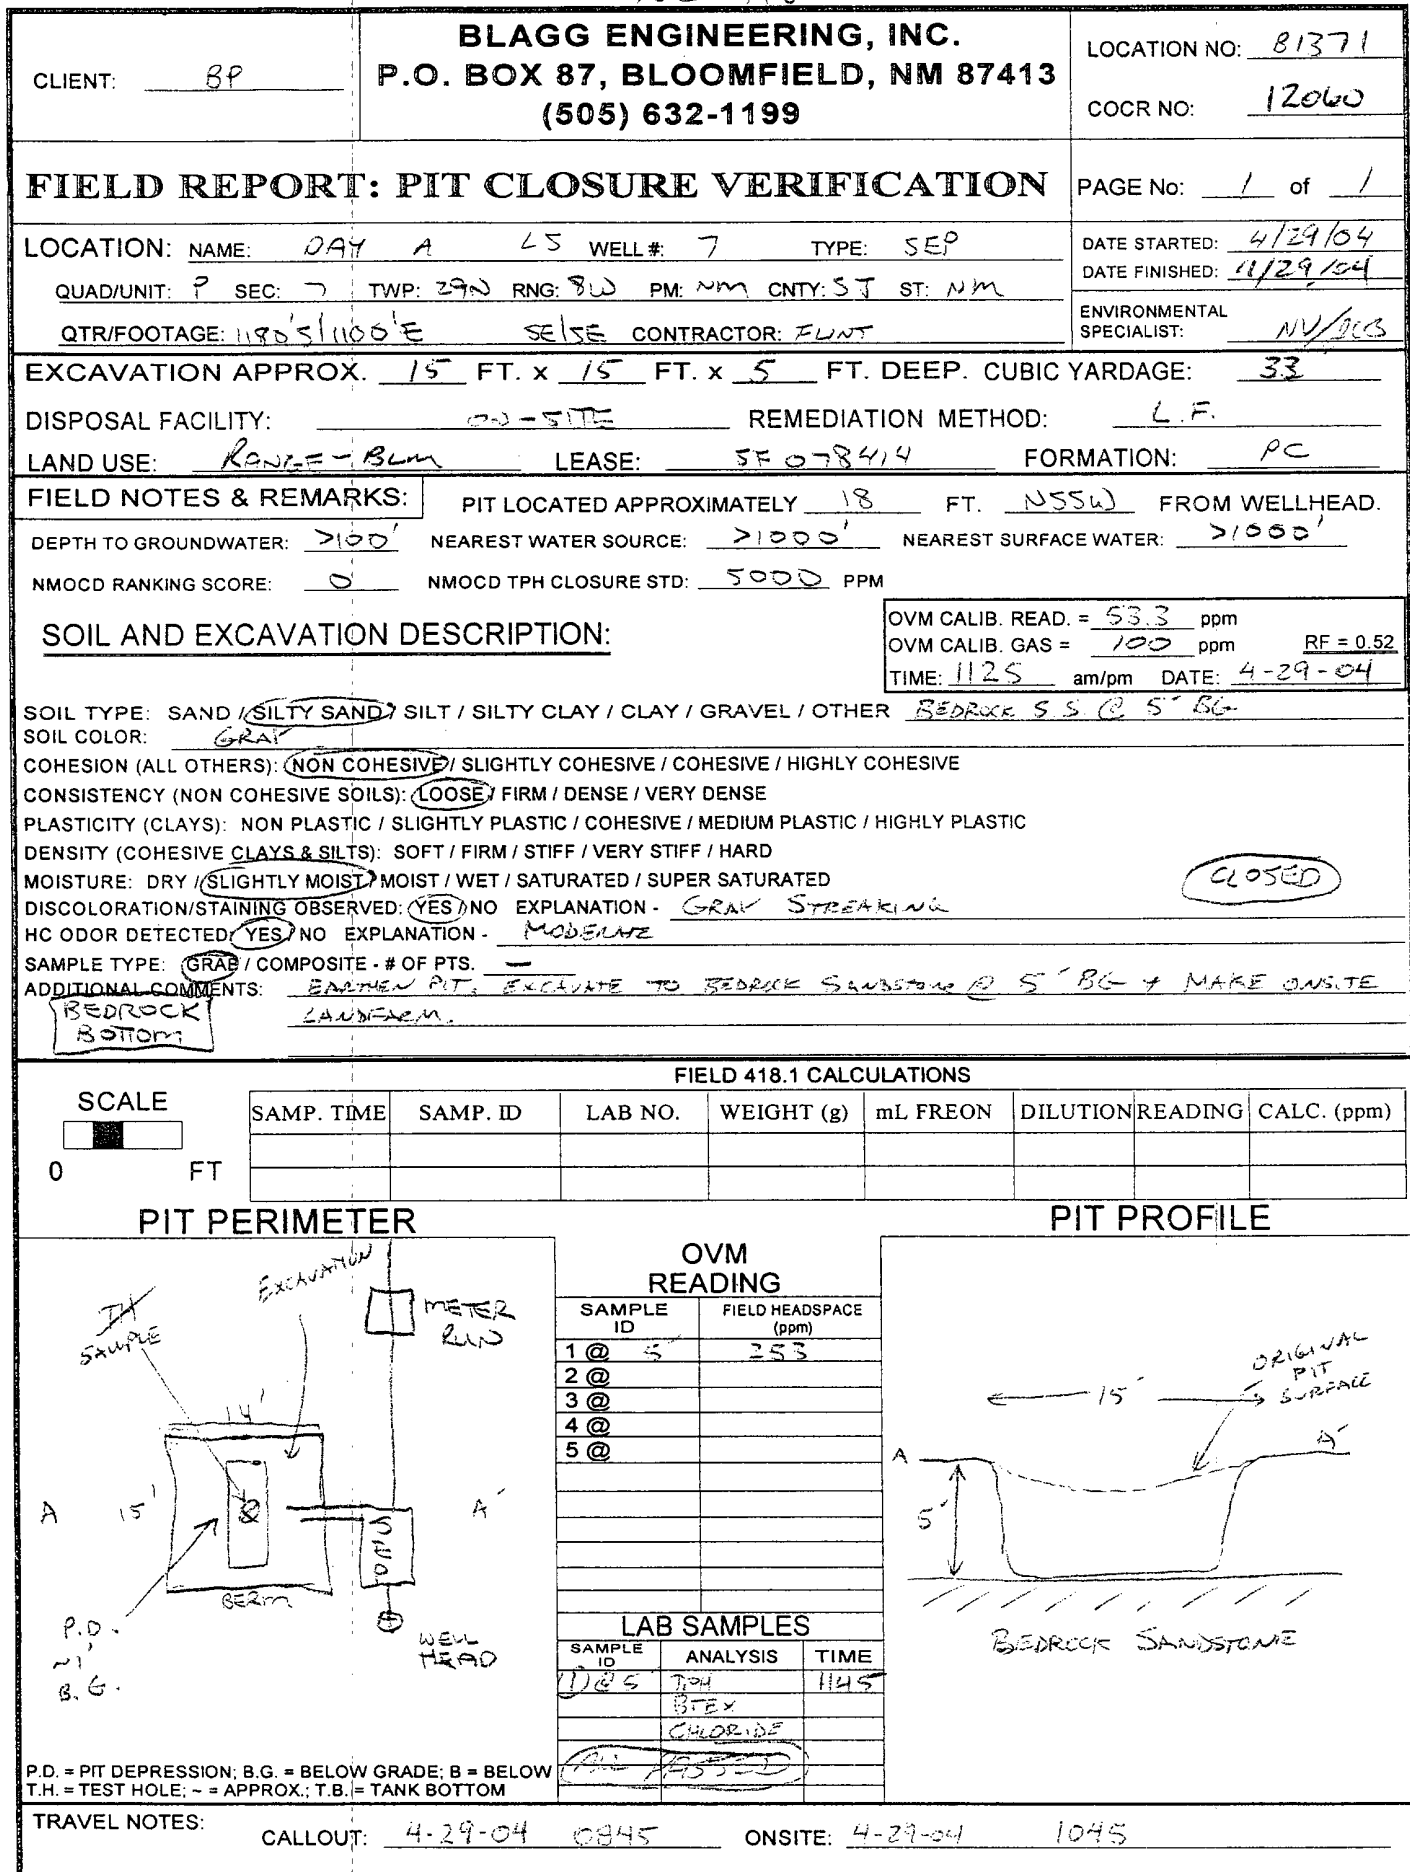 BLAGG ENGINEERING, INC.
P.O. BOX 87, BLOOMFIELD, NM 87413
(505) 632-1199
CLIENT: BP
LOCATION NO: 81371
COCR NO: 12060
FIELD REPORT: PIT CLOSURE VERIFICATION
PAGE No: 1 of 1
LOCATION: NAME: DAY A LS WELL #: 7 TYPE: SEP
QUAD/UNIT: P SEC: 7 TWP: 29N RNG: 8W PM: NM CNTY: SJ ST: NM
QTR/FOOTAGE: 1180'S/1100'E SE/SE CONTRACTOR: FLINT
DATE STARTED: 4/29/04
DATE FINISHED: 11/29/04
ENVIRONMENTAL
SPECIALIST: NV/JCB
EXCAVATION APPROX. 15 FT. x 15 FT. x 5 FT. DEEP. CUBIC YARDAGE: 33
DISPOSAL FACILITY: ON-SITE REMEDIATION METHOD: L.F.
LAND USE: RANGE - BLM LEASE: SF 078414 FORMATION: PC
FIELD NOTES & REMARKS: PIT LOCATED APPROXIMATELY 18 FT. N55W FROM WELLHEAD.
DEPTH TO GROUNDWATER: >100' NEAREST WATER SOURCE: >1000' NEAREST SURFACE WATER: >1000'
NMOCD RANKING SCORE: 0 NMOCD TPH CLOSURE STD: 5000 PPM
SOIL AND EXCAVATION DESCRIPTION:
OVM CALIB. READ. = 53.3 ppm
OVM CALIB. GAS = 100 ppm RF = 0.52
TIME: 1125 am/pm DATE: 4-29-04
SOIL TYPE: SAND / SILTY SAND / SILT / SILTY CLAY / CLAY / GRAVEL / OTHER BEDROCK S.S. @ 5' BG
SOIL COLOR: GRAY
COHESION (ALL OTHERS): NON COHESIVE / SLIGHTLY COHESIVE / COHESIVE / HIGHLY COHESIVE
CONSISTENCY (NON COHESIVE SOILS): LOOSE / FIRM / DENSE / VERY DENSE
PLASTICITY (CLAYS): NON PLASTIC / SLIGHTLY PLASTIC / COHESIVE / MEDIUM PLASTIC / HIGHLY PLASTIC
DENSITY (COHESIVE CLAYS & SILTS): SOFT / FIRM / STIFF / VERY STIFF / HARD
MOISTURE: DRY / SLIGHTLY MOIST / MOIST / WET / SATURATED / SUPER SATURATED
CLOSED
DISCOLORATION/STAINING OBSERVED: YES / NO EXPLANATION - GRAY STREAKING
HC ODOR DETECTED: YES / NO EXPLANATION - MODERATE
SAMPLE TYPE: GRAB / COMPOSITE - # OF PTS. —
ADDITIONAL COMMENTS: EARTHEN PIT. EXCAVATE TO BEDROCK SANDSTONE @ 5' BG + MAKE ONSITE
LANDFARM.
BEDROCK
BOTTOM
FIELD 418.1 CALCULATIONS
SCALE
0 FT
SAMP. TIME SAMP. ID LAB NO. WEIGHT (g) mL FREON DILUTION READING CALC. (ppm)
PIT PERIMETER
EXCAVATION
TH
SAMPLE
METER
RUN
14'
A 15' A'
SEP
BERM
P.D.
~1'
B.G.
WELL
HEAD
P.D. = PIT DEPRESSION; B.G. = BELOW GRADE; B = BELOW
T.H. = TEST HOLE; ~ = APPROX.; T.B. = TANK BOTTOM
OVM
READING
SAMPLE ID FIELD HEADSPACE (ppm)
1 @ 5' 253
2 @
3 @
4 @
5 @
LAB SAMPLES
SAMPLE ID ANALYSIS TIME
(1)@5' TPH 1145
BTEX
CHLORIDE
ALL PASSED
PIT PROFILE
ORIGINAL
PIT
SURFACE
15'
A A'
5'
BEDROCK SANDSTONE
TRAVEL NOTES: CALLOUT: 4-29-04 0845 ONSITE: 4-29-04 1045